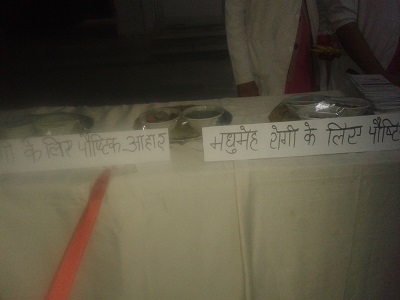 के लिए पौष्टिक आहार
मधुमेह रोगी के लिए